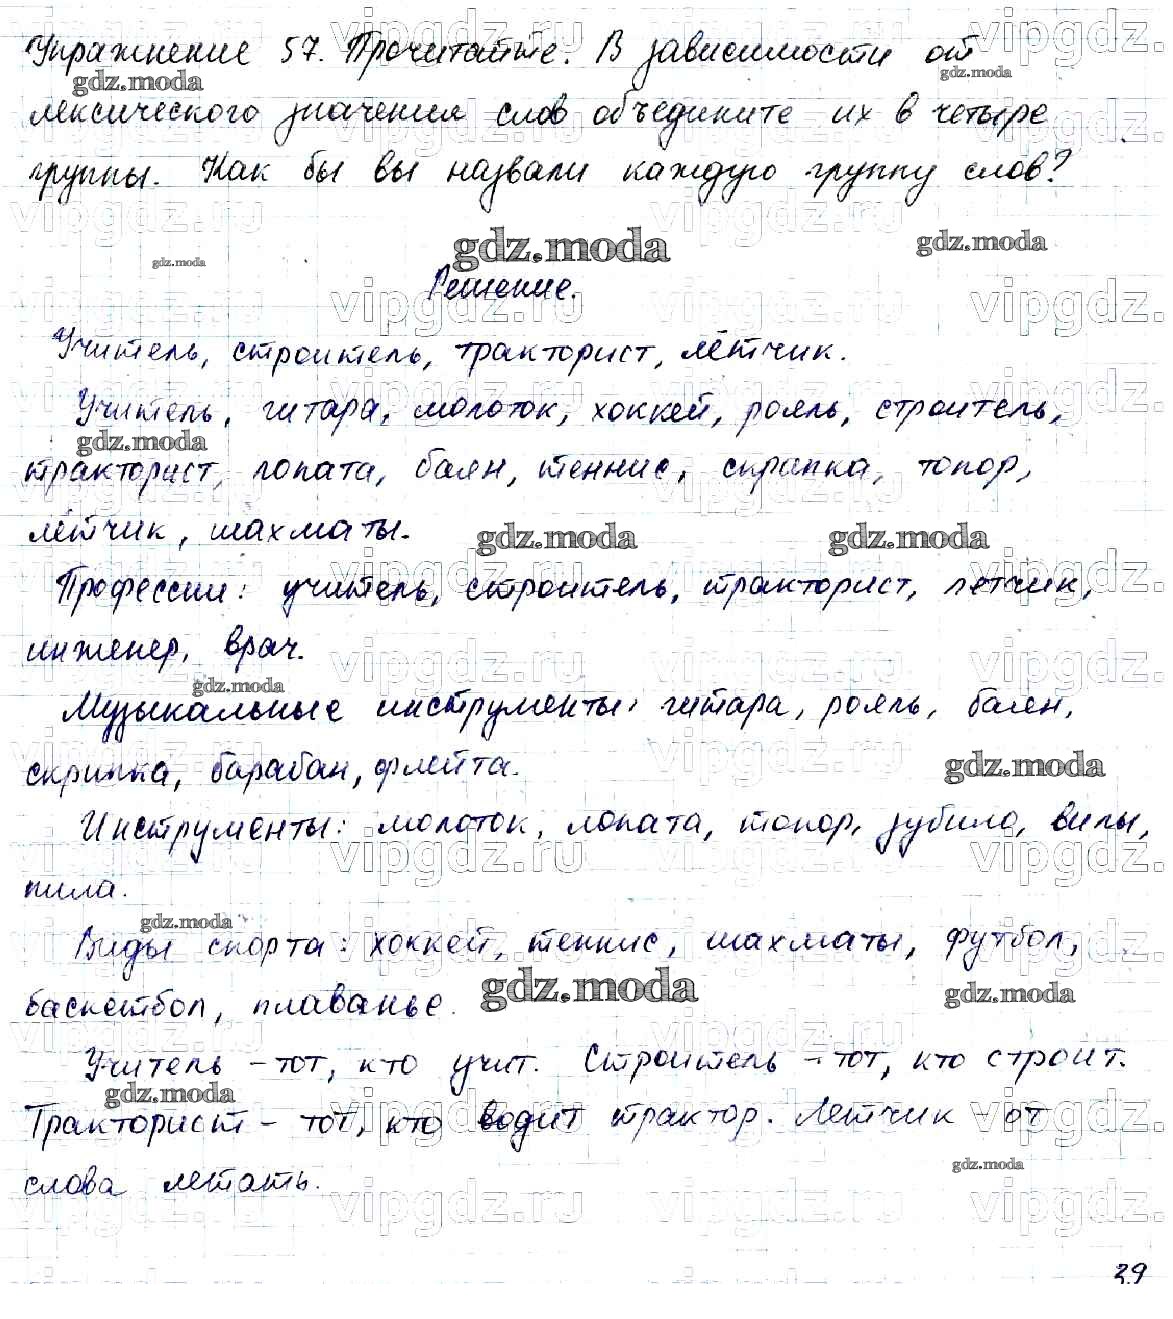 Упражнение 57. Прочитайте. В зависимости от
лексического значения слов объедините их в четыре
группы. Как бы вы назвали каждую группу слов?
Решение.
Учитель, строитель, тракторист, лётчик.
Учитель, гитара, молоток, хоккей, рояль, строитель,
тракторист, лопата, баян, теннис, скрипка, топор,
лётчик, шахматы.
Профессии: учитель, строитель, тракторист, летчик,
инженер, врач.
Музыкальные инструменты: гитара, рояль, баян,
скрипка, барабан, флейта.
Инструменты: молоток, лопата, топор, зубило, вилы,
пила.
Виды спорта: хоккей, теннис, шахматы, футбол,
баскетбол, плаванье.
Учитель - тот, кто учит. Строитель - тот, кто строит.
Тракторист - тот, кто водит трактор. Лётчик - от
слова летать.
39
gdz.moda
vipgdz.ru